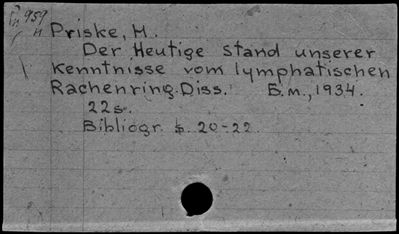 959
Priske, M.
Der Heutige Stand unserer
Kenntnisse vom lymphatischen
Rachenring. Diss. Б.м., 1934.
22s.
Bibliogr. s. 20-22.